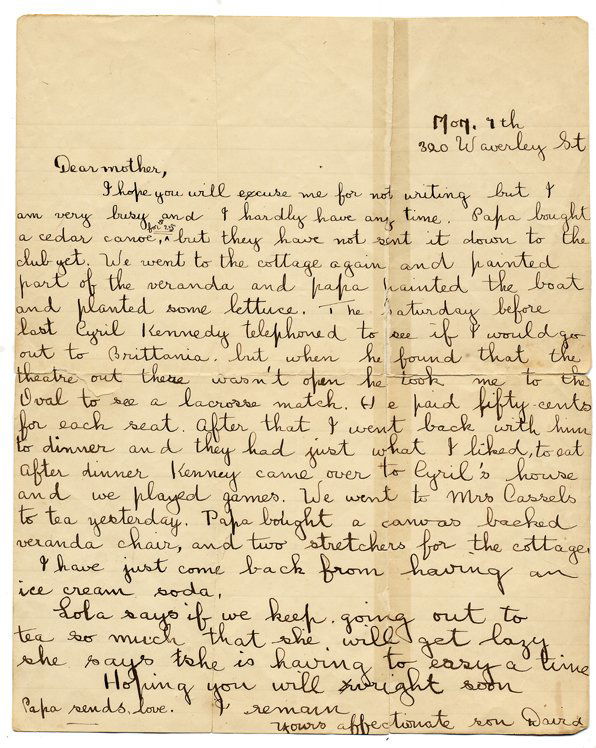 Mon. 7th
320 Waverley St
Dear mother,
I hope you will excuse me for not writing but I
am very busy and I hardly have any time. Papa bought
a cedar canoe, for 25 but they have not sent it down to the
club yet. We went to the cottage again and painted
part of the veranda and papa painted the boat
and planted some lettuce. The Saturday before
last Cyril Kennedy telephoned to see if I would go
out to Brittania. but when he found that the
theatre out there wasn't open he took me to the
Oval to see a lacrosse match. He paid fifty-cents
for each seat. After that I went back with him
to dinner and they had just what I liked, to eat
After dinner Kenney came over to Cyril's house
and we played games. We went to Mrs Cassels
to tea yesterday. Papa bought a canvas backed
veranda chair, and two stretchers for the cottage.
I have just come back from having an
ice cream soda.
Lola says if we keep going out to
tea so much that she will get lazy
she says she is having to easy a time
Hoping you will wright soon
Papa sends love. I remain
Yours affectunate son David